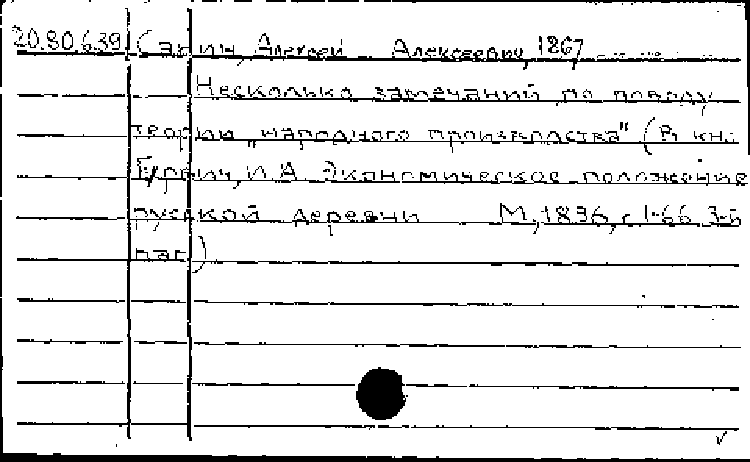 20.80.6.39 Санин, Алексей Алексеевич, 1867
Несколько замечаний по поводу
теории „народного производства" (В кн.:
Гурвич, И.А. Экономическое положение
русской деревни М, 1896, с 1-66 3-й
паг)